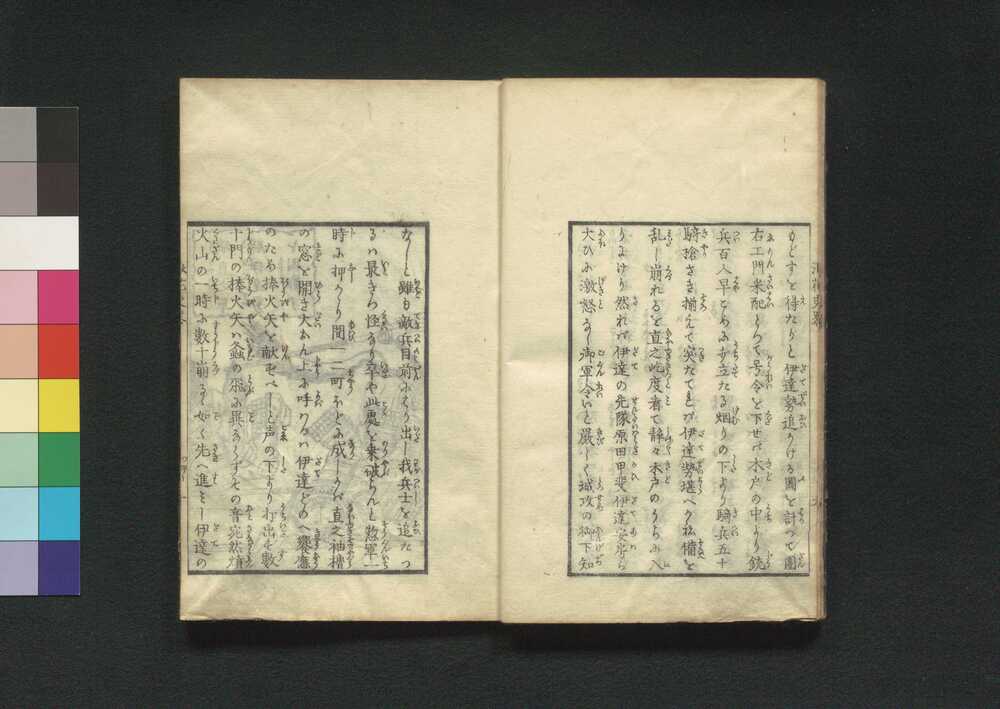 もどすを得たりと伊達勢追かける圖を計つて團
右エ門采配とつて号令を下せバ木戸の中より銃
兵百人早とも丶打立たる烟りの下より騎兵五十
騎搶さき揃えて突たてしが伊達勢堪へク松備を
乱し崩れるを直之屹度看て静々木戸のうちへ入
りにけり然れバ伊達の先隊原田甲斐伊達安房ら
大ひに激怒なし御軍令いと嚴しく城攻の下知
なしと雖も敵兵目前にはり出し我兵士を追たつ
るハ最きわ怪なり卒や此處を乗破らんと勲軍一
時に押かゝり間一二町ほどに成しかバ直之袖櫓
の窓を開き大おん上に呼ハり伊達どのへ饗應
のため捧火矢を献ぜべしと声の下より打出を数
十門の捧火矢ハ螽の飛に異ならずその音宛然
火山の一時に数十崩るゝ如く先へ進みし伊達の